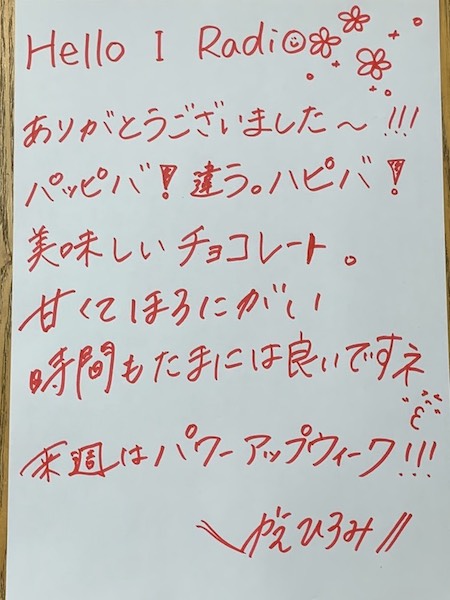 Hello I Radio
ありがとうございました〜!!!
パッピバ!違う。ハピバ!
美味しいチョコレート。
甘くてほろにがい
時間もたまには良いですネ
来週はパワーアップウィーク!!!
\かえひろみ//